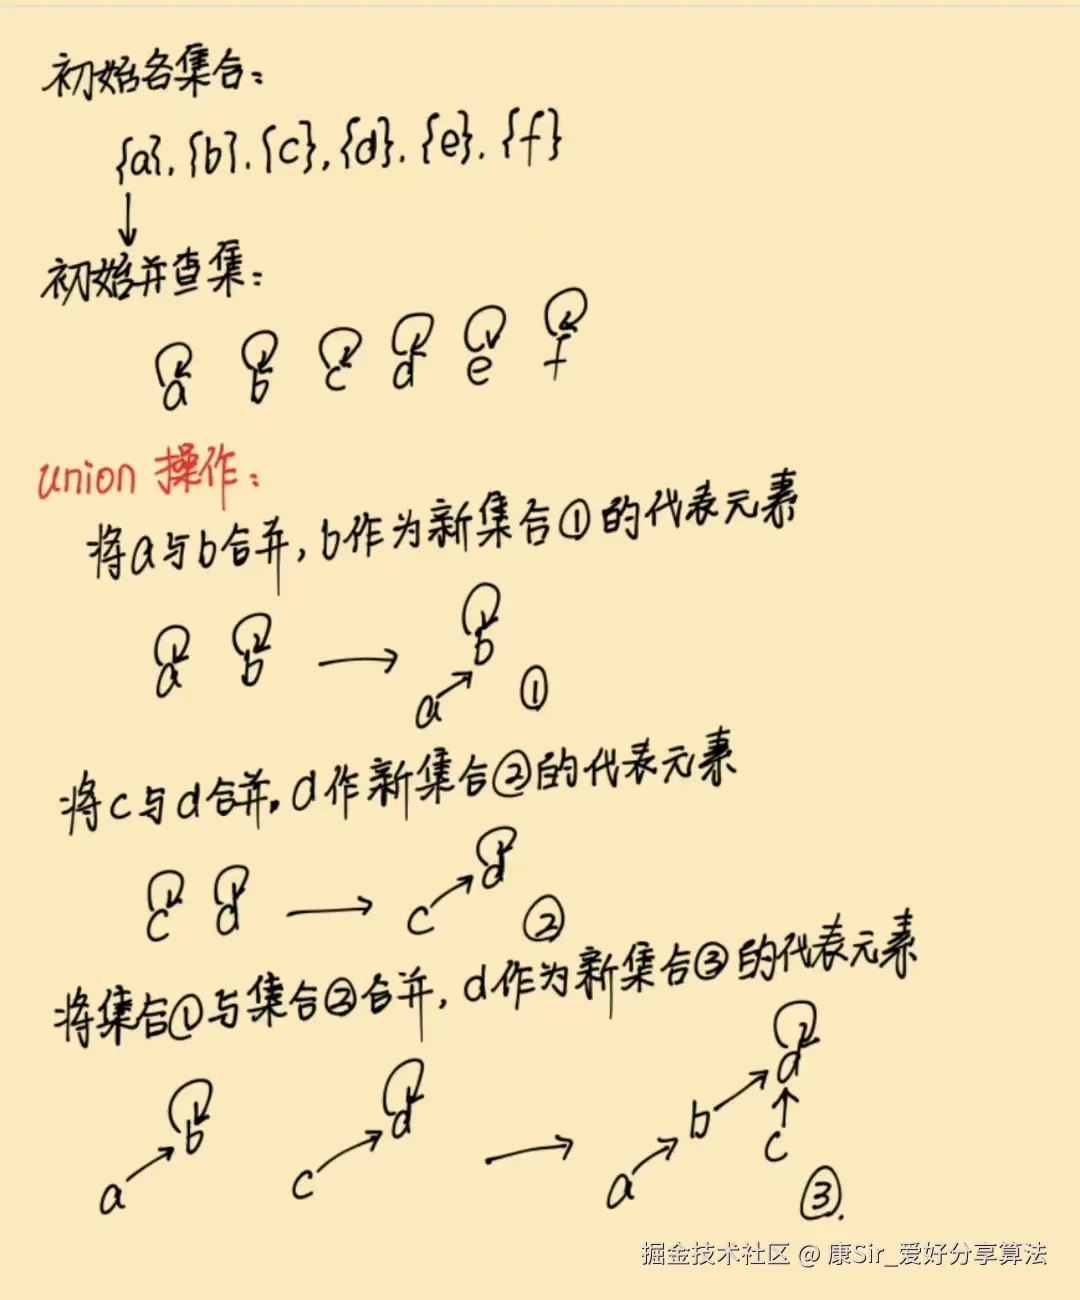 初始各集合:
{a}, {b}, {c}, {d}, {e}, {f}
初始并查集:
a b c d e f
union 操作:
将a与b合并, b作为新集合①的代表元素
a b b
a ①
将c与d合并, d作新集合②的代表元素
c d c d
②
将集合①与集合②合并, d作为新集合③的代表元素
b d d
a c a b c
③.
掘金技术社区 @ 康Sir_爱好分享算法